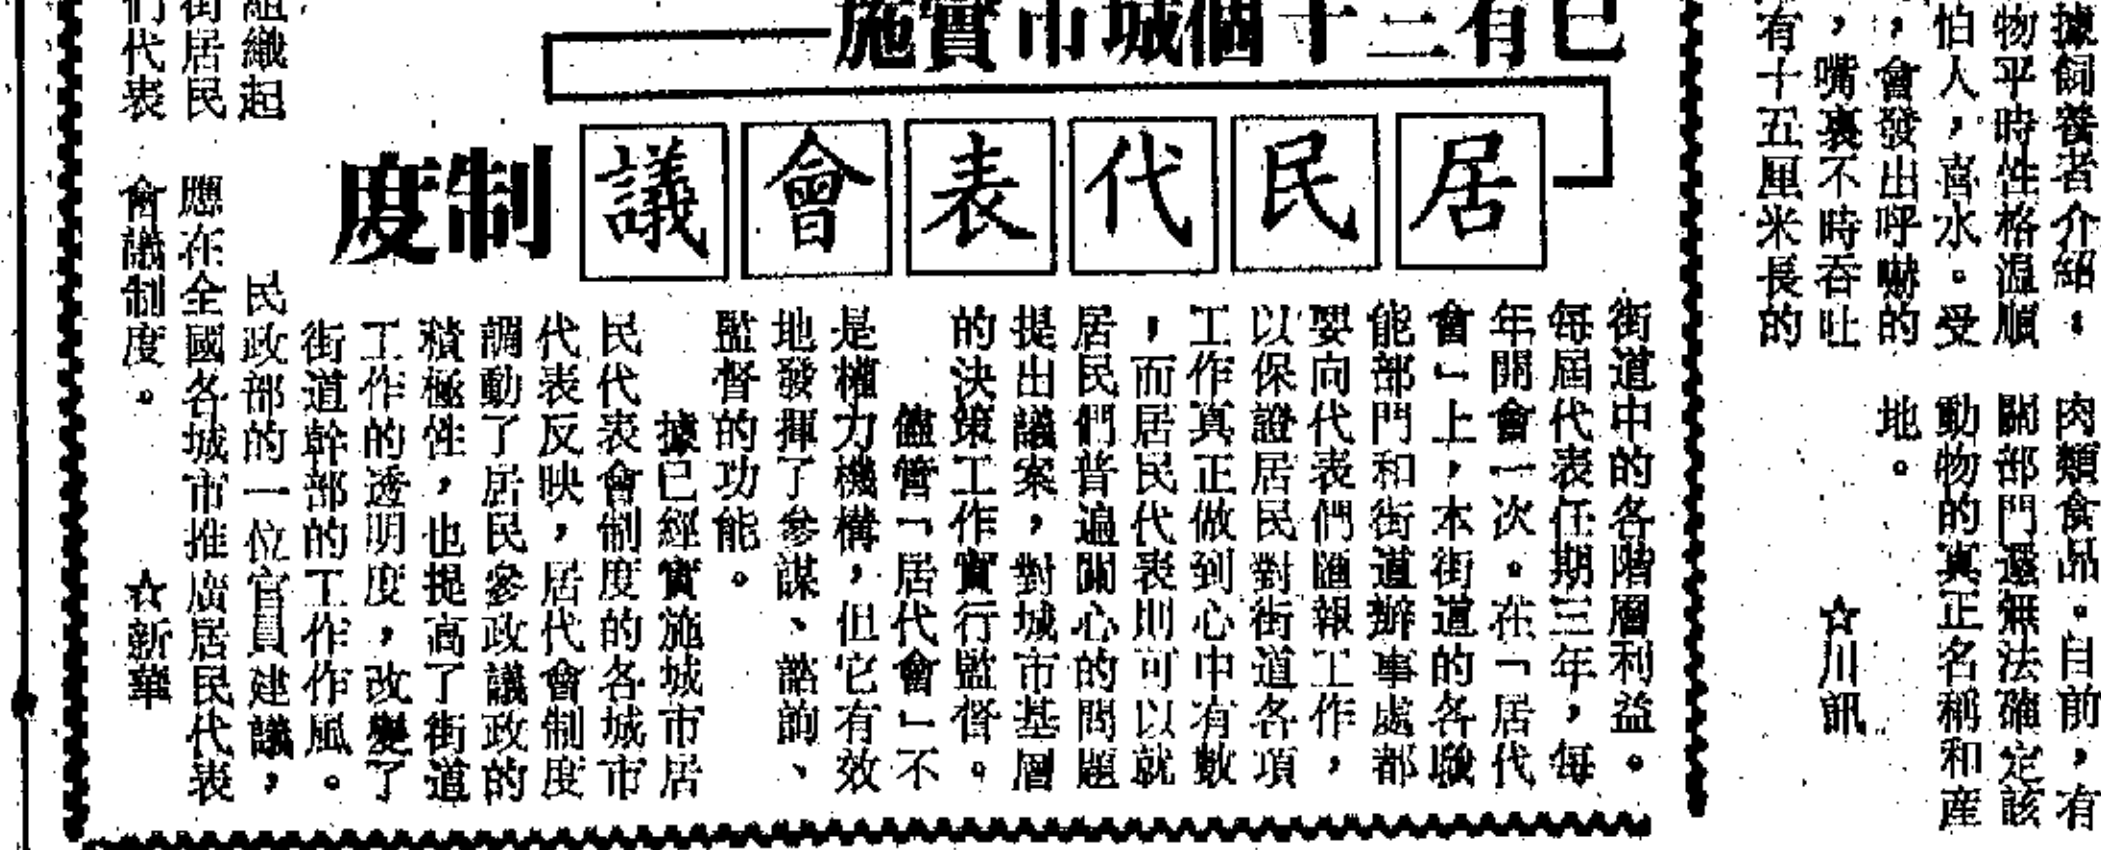 據飼養者介紹，
物平時性格温順
怕人，喜水。受
，會發出呼嚇的
，嘴裏不時吞吐
有十五厘米長的
肉類食品。目前，有
關部門還無法確定該
動物的真正名稱和産
地。
☆川訊
已有三十個城市實施
居民代表會議制度
街道中的各階層利益。
每屆代表任期三年，每
年開會一次。在「居代
會」上，本街道的各職
能部門和街道辦事處都
要向代表們匯報工作，
以保證居民對街道各項
工作真正做到心中有數
，而居民代表則可以就
居民們普遍關心的問題
提出議案，對城市基層
的決策工作實行監督。
儘管「居代會」不
是權力機構，但它有效
地發揮了參謀、諮詢、
監督的功能。
據已經實施城市居
民代表會制度的各城市
代表反映，居代會制度
調動了居民參政議政的
積極性，也提高了街道
工作的透明度，改變了
街道幹部的工作作風。
民政部的一位官員建議，
應在全國各城市推廣居民代表
會議制度。
☆新華
組織起
街居民
們代表